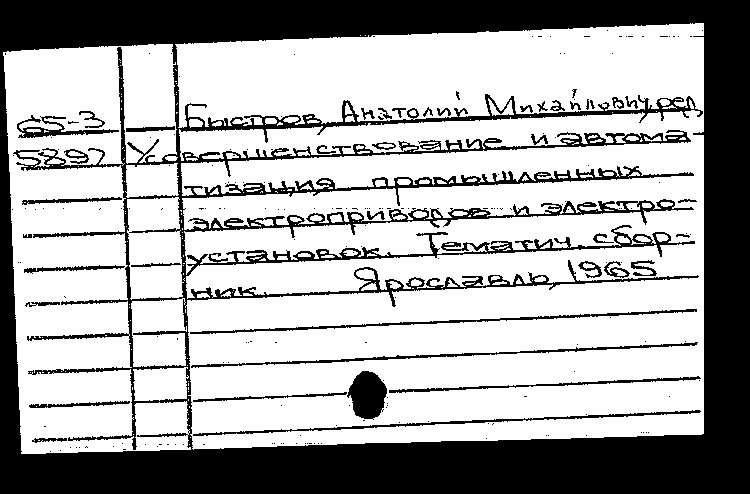 65-3 Быстров, Анатолий Михайлович, ред.
5897 Усовершенствование и автома-
тизация промышленных
электроприводов и электро-
установок. Тематич. сбор-
ник. Ярославль, 1965